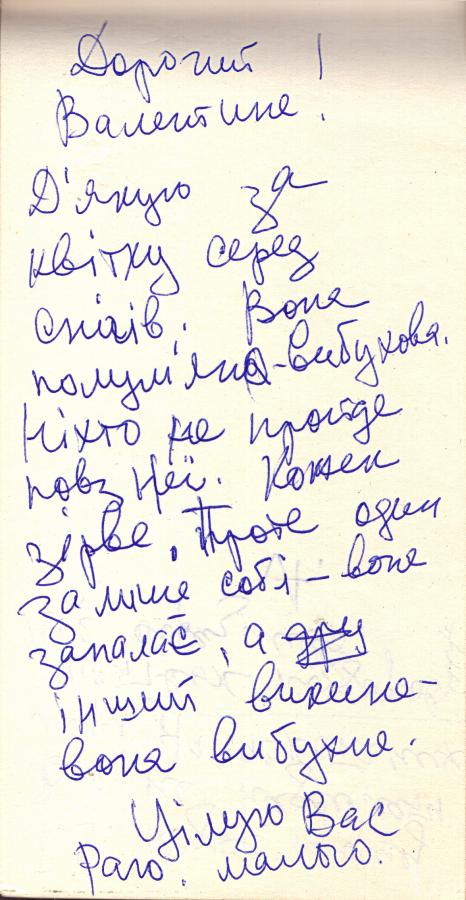 Дорогий
Валентине!
Дякую за
квітку серед
снігів. Вона
полум'яно-вибухова.
Ніхто не пройде
повз неї. Кожен
зірве, Проте один
залише собі – вона
запалає, а
інший викине –
вона вибухне.
Цілую Вас